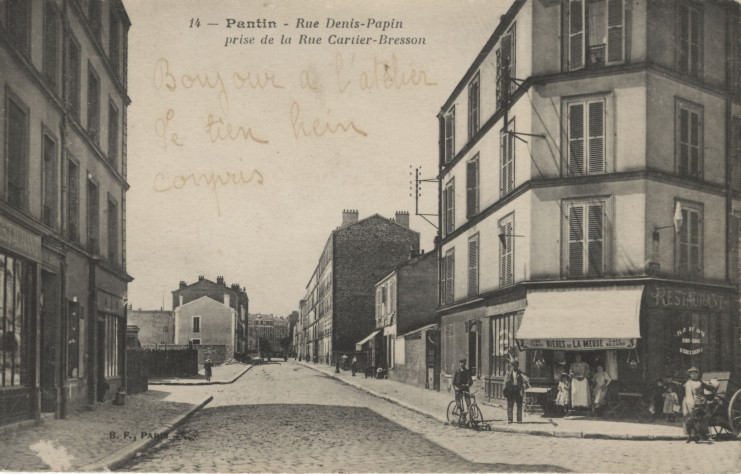 14 — Pantin - Rue Denis-Papin
prise de la Rue Cartier-Bresson
Bonjour a l'atelier
Je tien hein
compris
RESTAURANT
BIÈRES DE LA MEUSE
B. F., PARIS